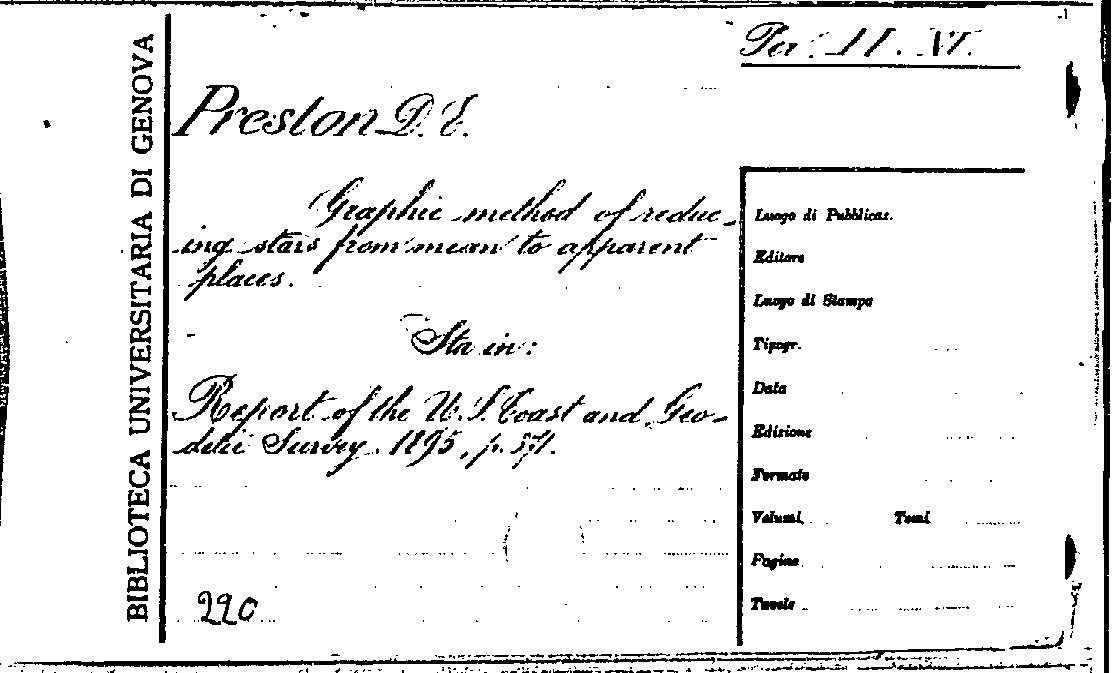 Per. II. XI.
BIBLIOTECA UNIVERSITARIA DI GENOVA
Preston D. E.
Graphic method of reduc-
ing stars from mean to apparent
places.
Sta in:
Report of the U. S. Coast and Geo-
detic Survey. 1895, p. 371.
220
Luogo di Pubblicaz.
Editore
Luogo di Stampa
Tipogr.
Data
Edizione
Formato
Volumi Tomi
Pagine
Tavole